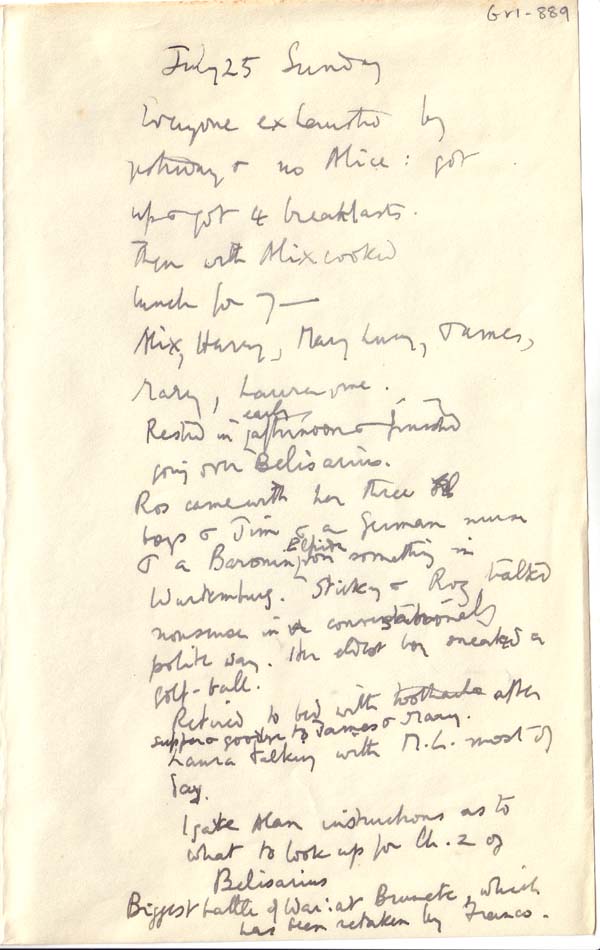 GVI-889
July 25 Sunday
Everyone exhausted by
yesterday & no Alice: got
up & got 4 breakfasts.
Then with Alix cooked
lunch for 7 —
Alix, Harry, Mary Lucy, James,
Mary, Laura, me.
early
Rested in afternoon & finished
going over Belisarius.
Ros came with her three
boys & Jim & a German nurse
& a Baronin von something in
Wurtemburg. Sticky & Roz talked
nonsense in a conversationally
polite way. Her eldest boy sneaked a
golf-ball.
Retired to bed with toothache after
supper & goodbye to James & Mary.
Laura talking with M.L. most of
day.
I gave Alan instructions as to
what to look up for Ch. 2 of
Belisarius
Biggest battle of War: at Brunete, which
has been retaken by Franco.